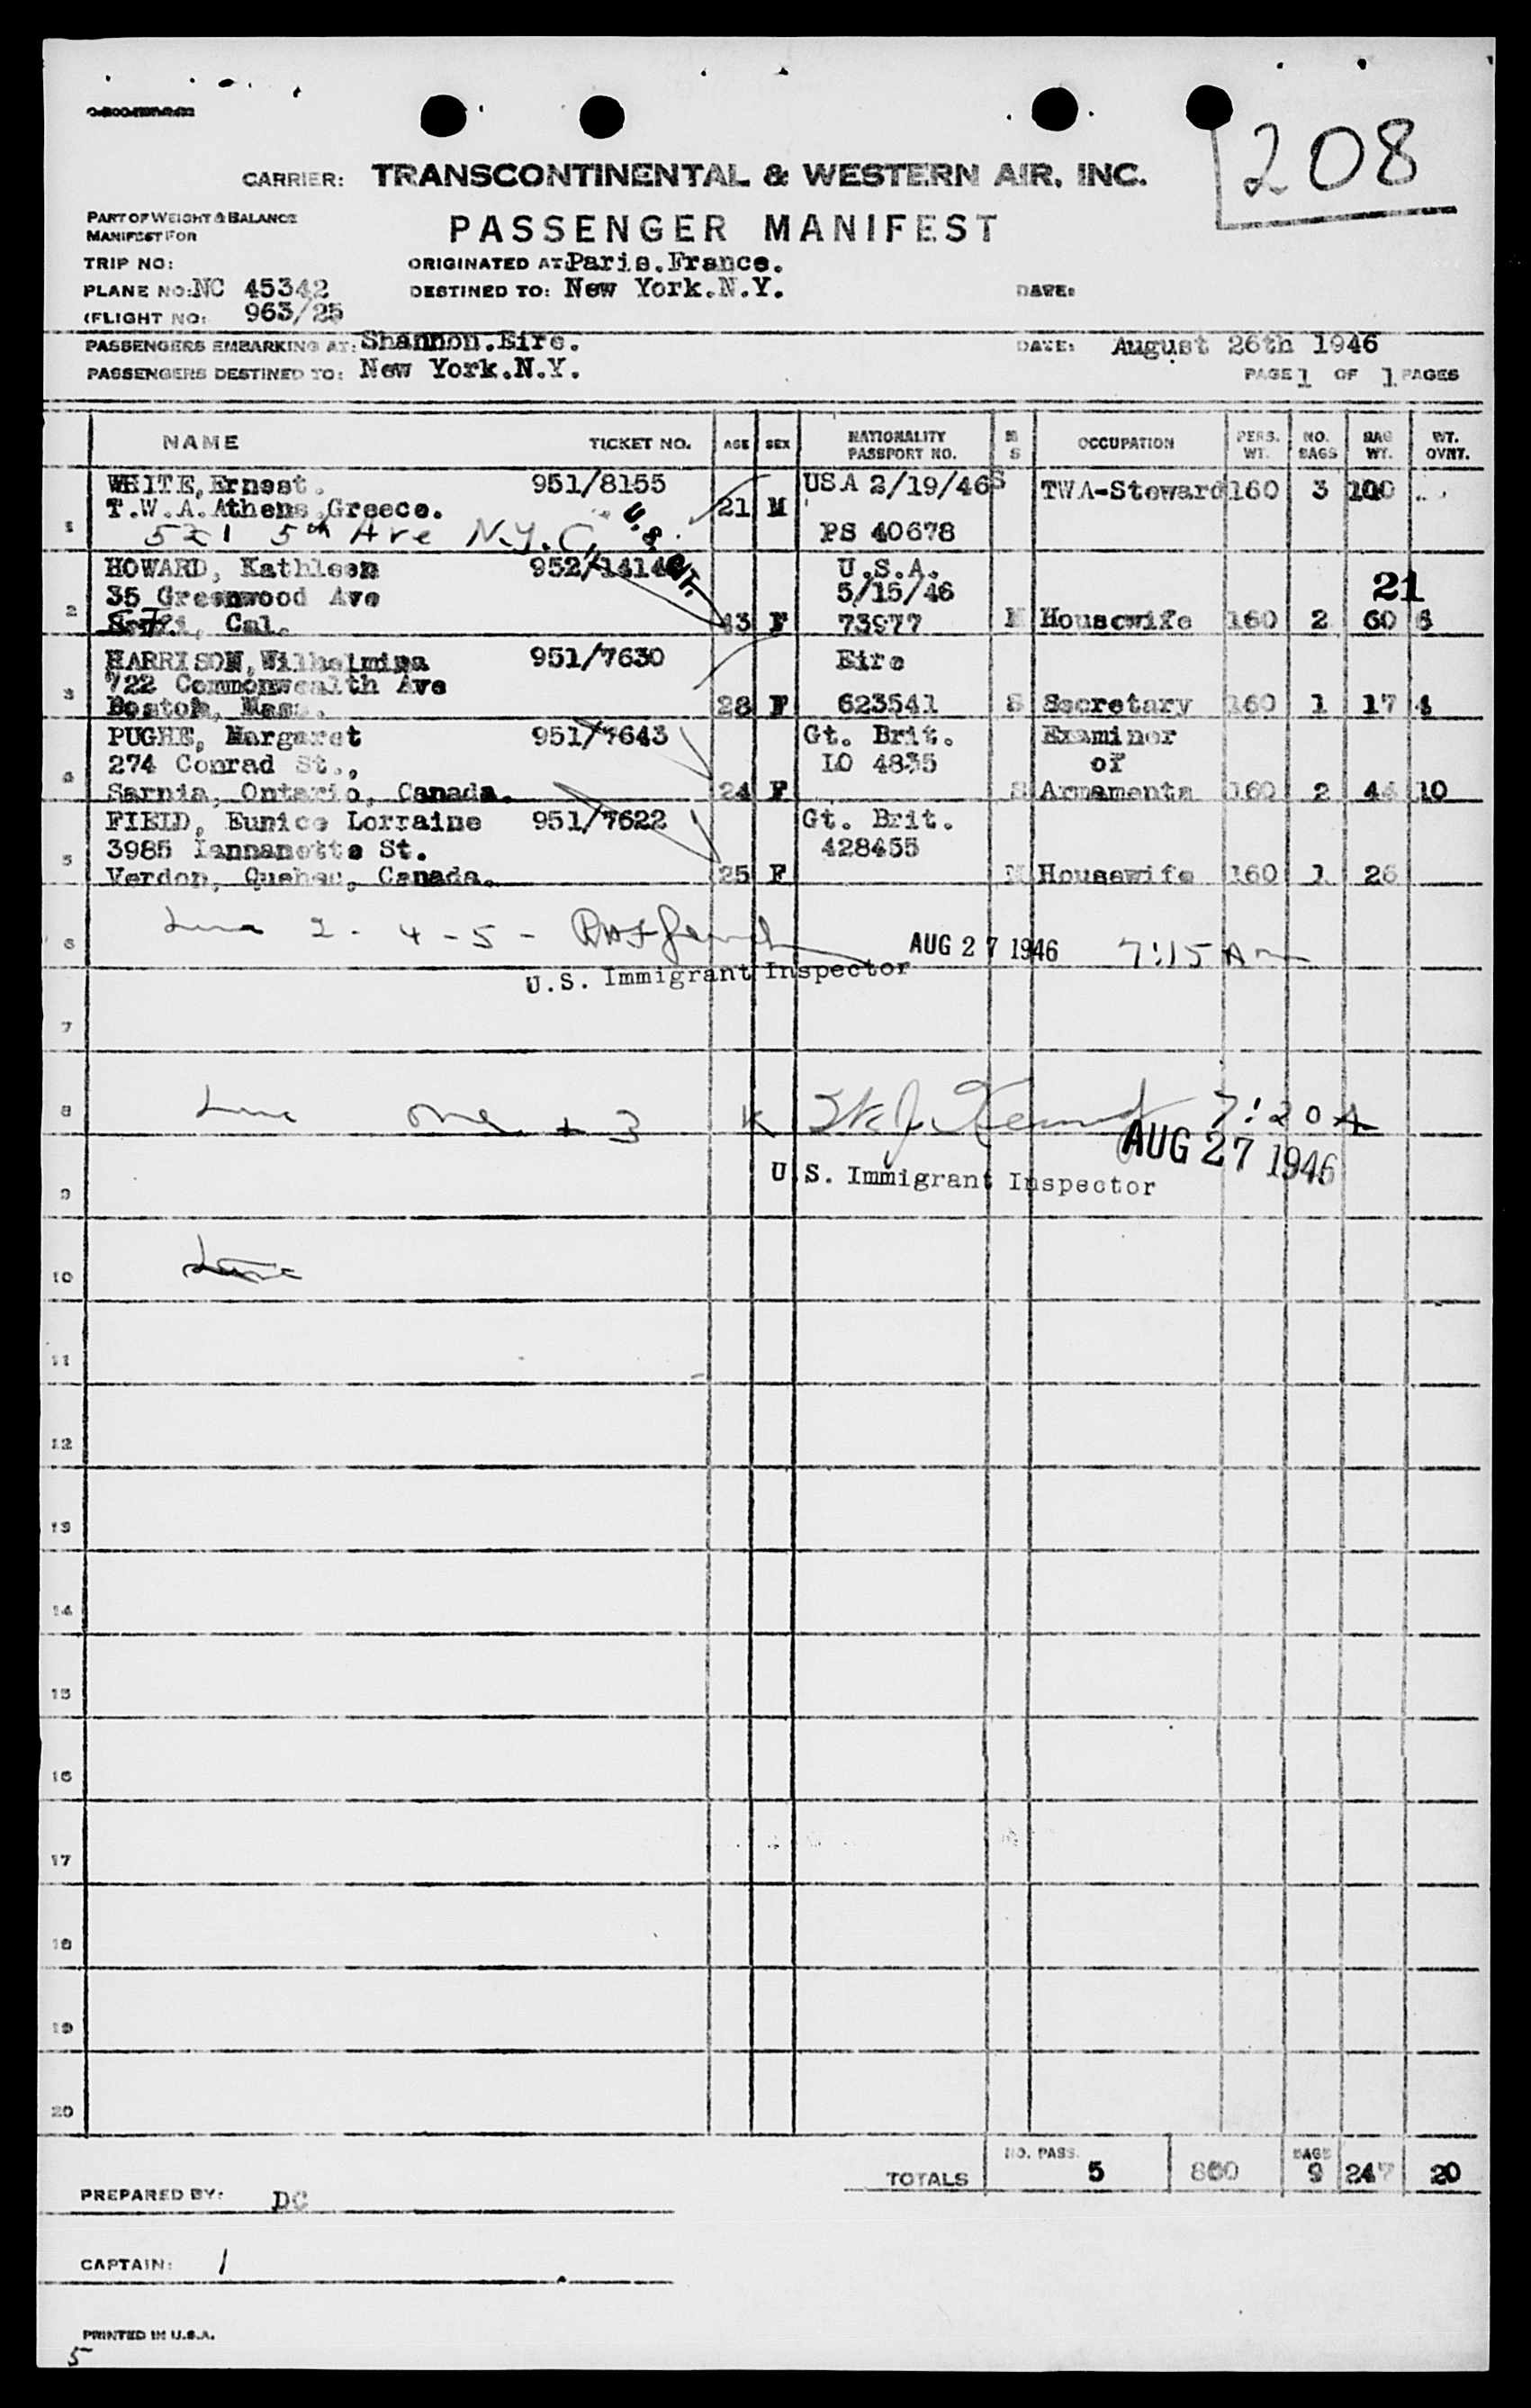 208
CARRIER: TRANSCONTINENTAL & WESTERN AIR, INC.
PART OF WEIGHT & BALANCE
MANIFEST FOR
PASSENGER MANIFEST
TRIP NO:
ORIGINATED AT: Paris.France.
PLANE NO: NC 45342
DESTINED TO: New York.N.Y.
DATE:
(FLIGHT NO: 963/25
PASSENGERS EMBARKING AT: Shannon.Eire.
DATE: August 26th 1946
PASSENGERS DESTINED TO: New York.N.Y.
PAGE 1 OF 1 PAGES
NAME TICKET NO. AGE SEX NATIONALITY PASSPORT NO. M S OCCUPATION PERS. WT. NO. BAGS BAG WT. WT. OVNT.
WHITE, Ernest. 951/8155 USA 2/19/46 S TWA-Steward 160 3 100
T.W.A. Athens Greece. 21 M
1 521 5th Ave N.Y.C. PS 40678
U.S. CIT.
HOWARD, Kathleen 952/1414 U.S.A.
35 Greenwood Ave 5/15/46 21
2 Cal. 43 F 73977 M Housewife 160 2 60 6
HARRISON, Wilhelmina 951/7630 Eire
722 Commonwealth Ave
3 Boston, Mass. 28 F 623541 S Secretary 160 1 17 4
PUGHE, Margaret 951/7643 Gt. Brit. Examiner
274 Conrad St., LO 4835 of
4 Sarnia, Ontario, Canada. 24 F S Armaments 160 2 44 10
FIELD, Eunice Lorraine 951/7622 Gt. Brit.
3985 St. 428455
5 Verdon, Quebec, Canada. 25 F M Housewife 160 1 26
6 Line 2 - 4 - 5 - AUG 27 1946 7:15 Am
U.S. Immigrant Inspector
7
8 Line one + 3 7:20 A
AUG 27 1946
U.S. Immigrant Inspector
9
10 Line
11
12
13
14
15
16
17
18
19
20
TOTALS NO. PASS. 5 800 BAGS 9 247 20
PREPARED BY: DC
CAPTAIN:
PRINTED IN U.S.A.
5